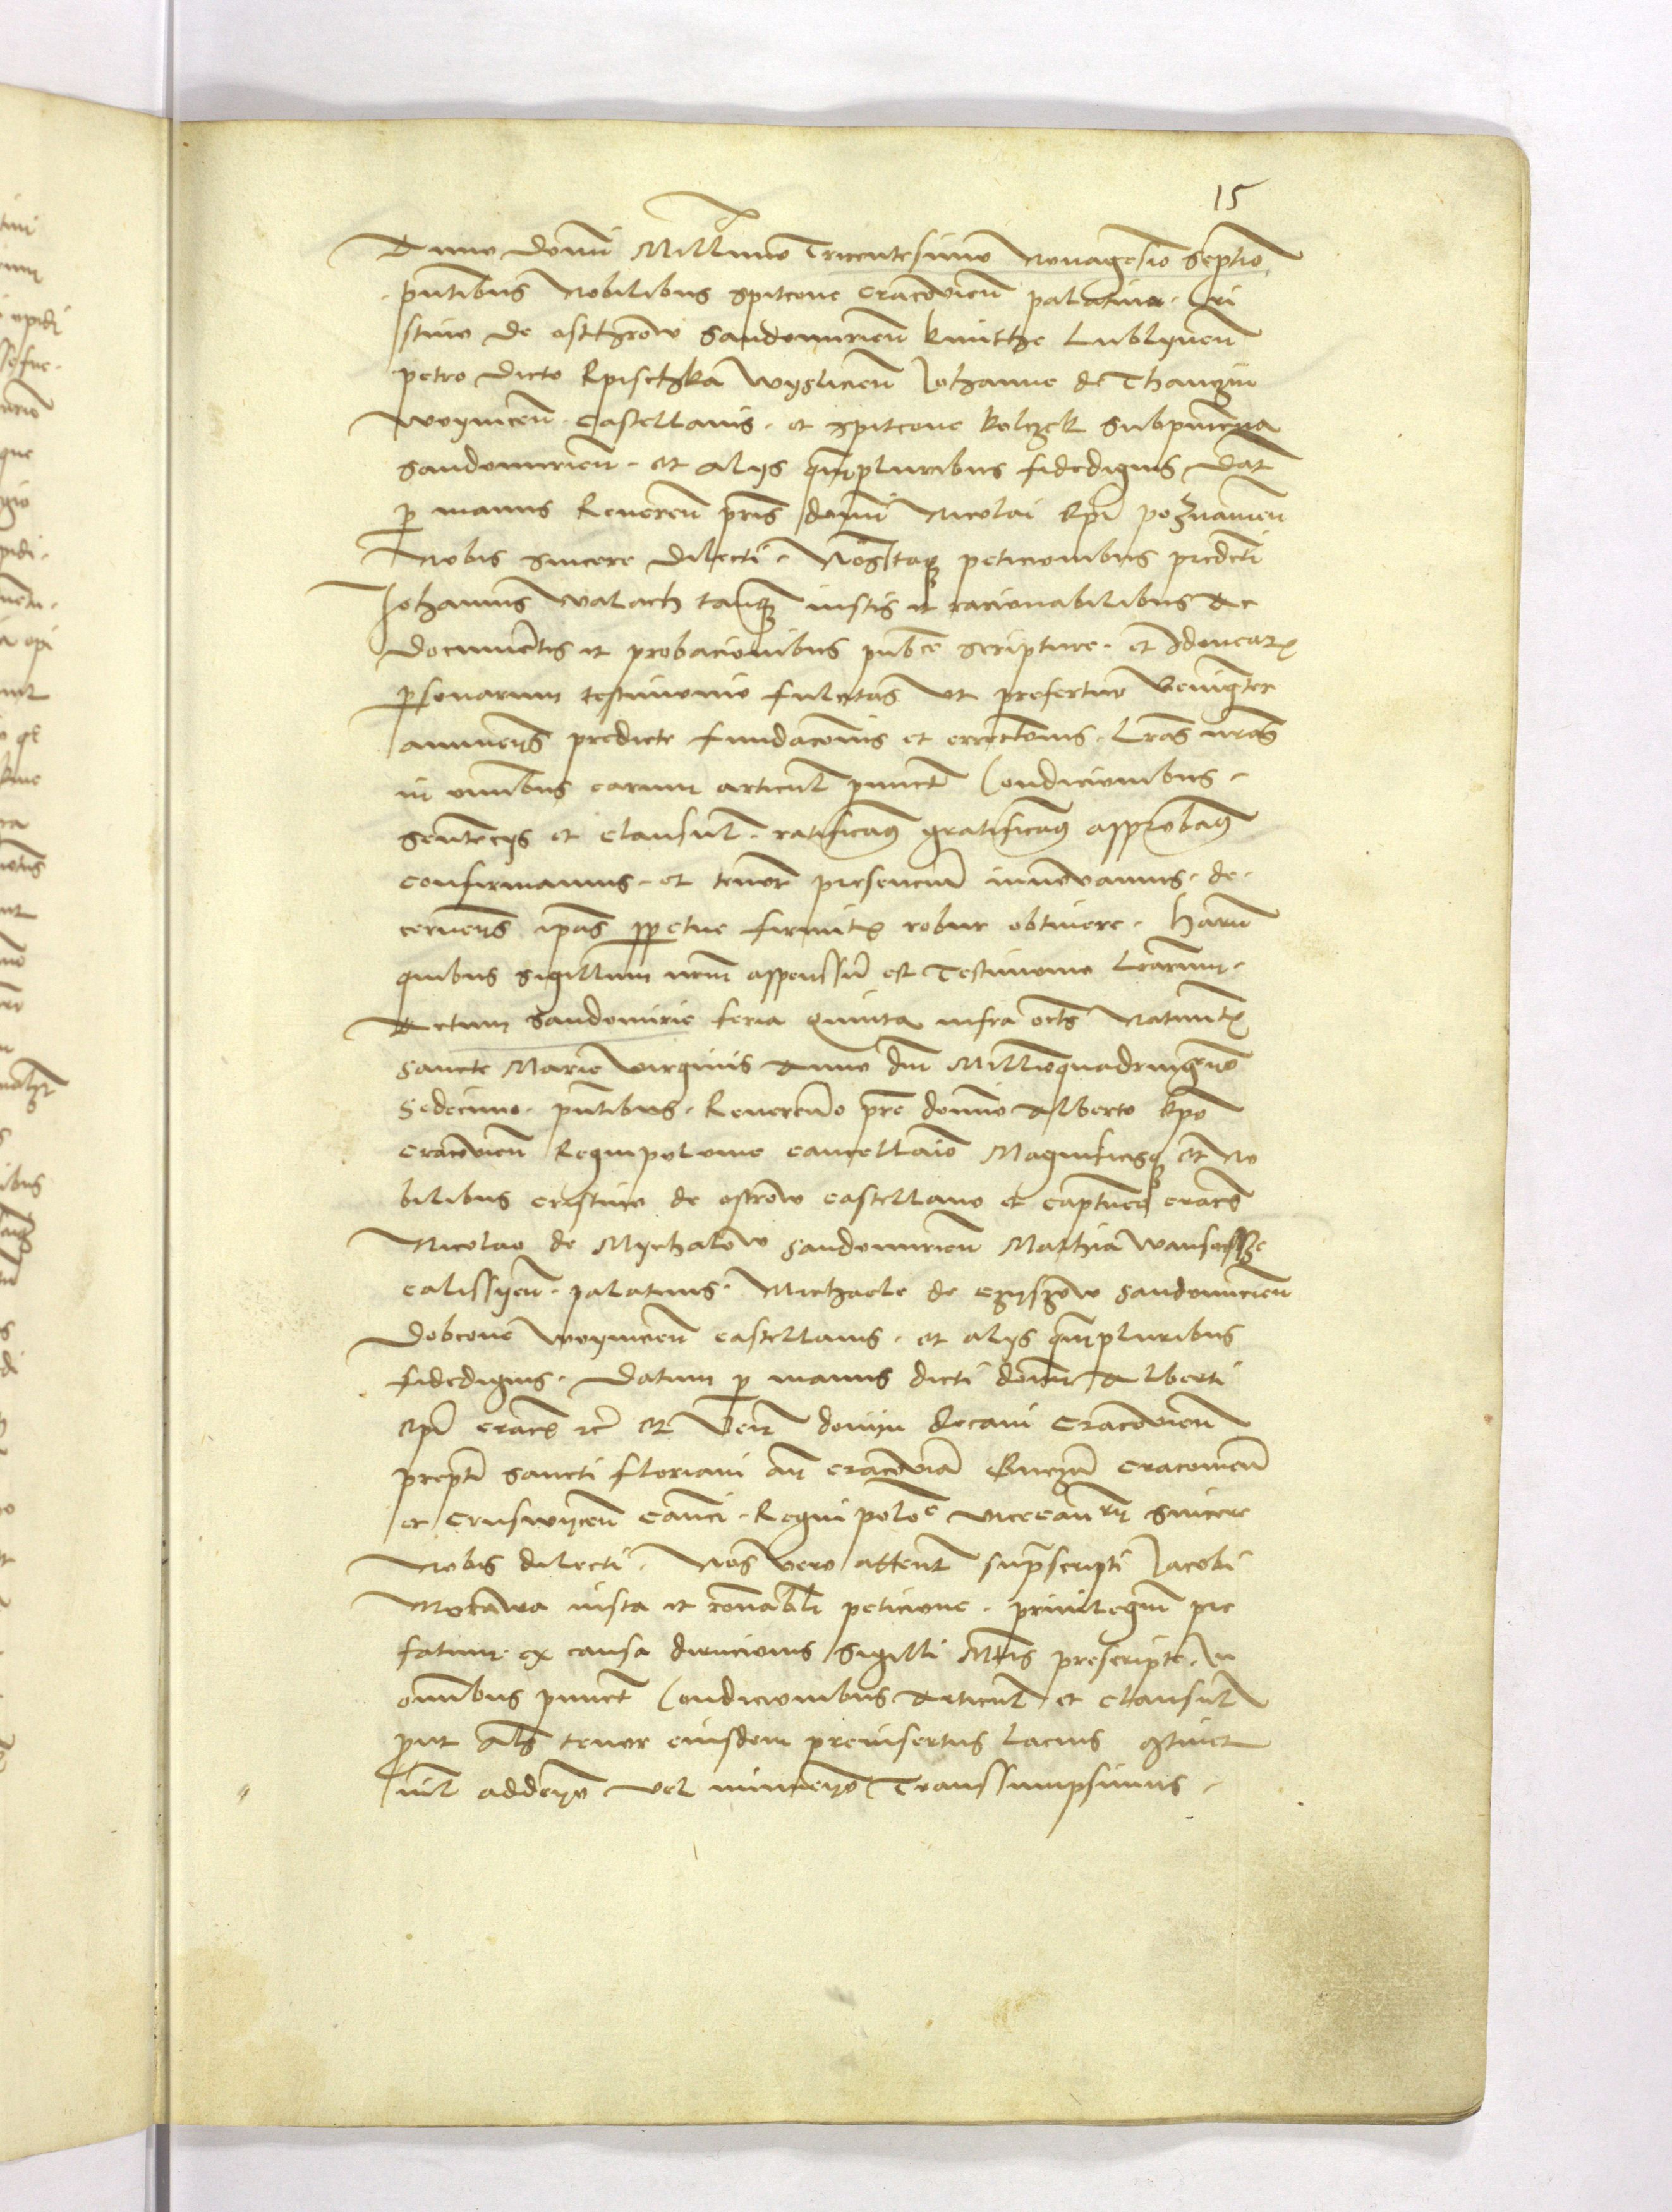 15
Anno domini Millimo Tricentesimo Nonagesio septio
pntibus Nobilibus Spitcone Cracovien palatino. Cri
stino de osthrow Sandomirien kmithe Lublynen
petro dicto Rpischka Wysliciem Johanne de Thanczin
Woynicen. Castellanis. et Spitcone kolczek Subpincerna
Sandomirien. et alys qmpluribus fidedignis Dat
p manus Reveren pris domi Nicolai Epi poznanien
Nobis sincere dilecti. Nos itaq peticionibus predicti
Johannis Walach tanq iustis et racionabilibus Ac
documetis et probacionibus publice scripture. et Idonear
psonarum testimonio fulcitas ut prefertur benigter
annuens predicte fundacois et erectionis. Lras nras
in omibus earum articul punct Condicionibus.
sentencys et clausul. ratificam gratificam approbam
confirmamus. et tenor presencium innovamus. de
cernens ipas ppetue firmit robur obtinere. Harum
quibus sigillum nrm appensum est Testimonio Lrarum.
Actum Sandomirie feria quinta infra octs Nativit
sancte Marie virginis Anno dni Millioquadringeno
Sedecimo. pntibus. Reverendo pre domino Alberto Epo
Cracovien Regni polonie cancellaio Magnificisq et No
bilibus Cristino de ostrow castellano et capitaneo Crac
Nicolao de Mychalow Sandomirien Mathia
calissyen. palatinis. Michaele de Czyszow Sandomirien
Dobcone Woynicen castellanis. et alys qmpluribus
fidedignis. Datum p manus dicti domi Alberti
Epi Crac et Ven domin decani Cracovien
prepti sancti floriani an Cracoviam Cracovien
et Cruswycen Canci. Regni polo vicecanry sincere
Nobis dilecti. Nos vero attent suprascripti Jacobi
Morawa iusta et ronabli peticione. privilegium pre
fatum. ex causa sigilli prescripte. In
omibus punct Condicionibus Articul et clausul
prout Als tenor eiusdem preinsertus lacius ptinet
nil addeno vel minueno Transsumpsimus.